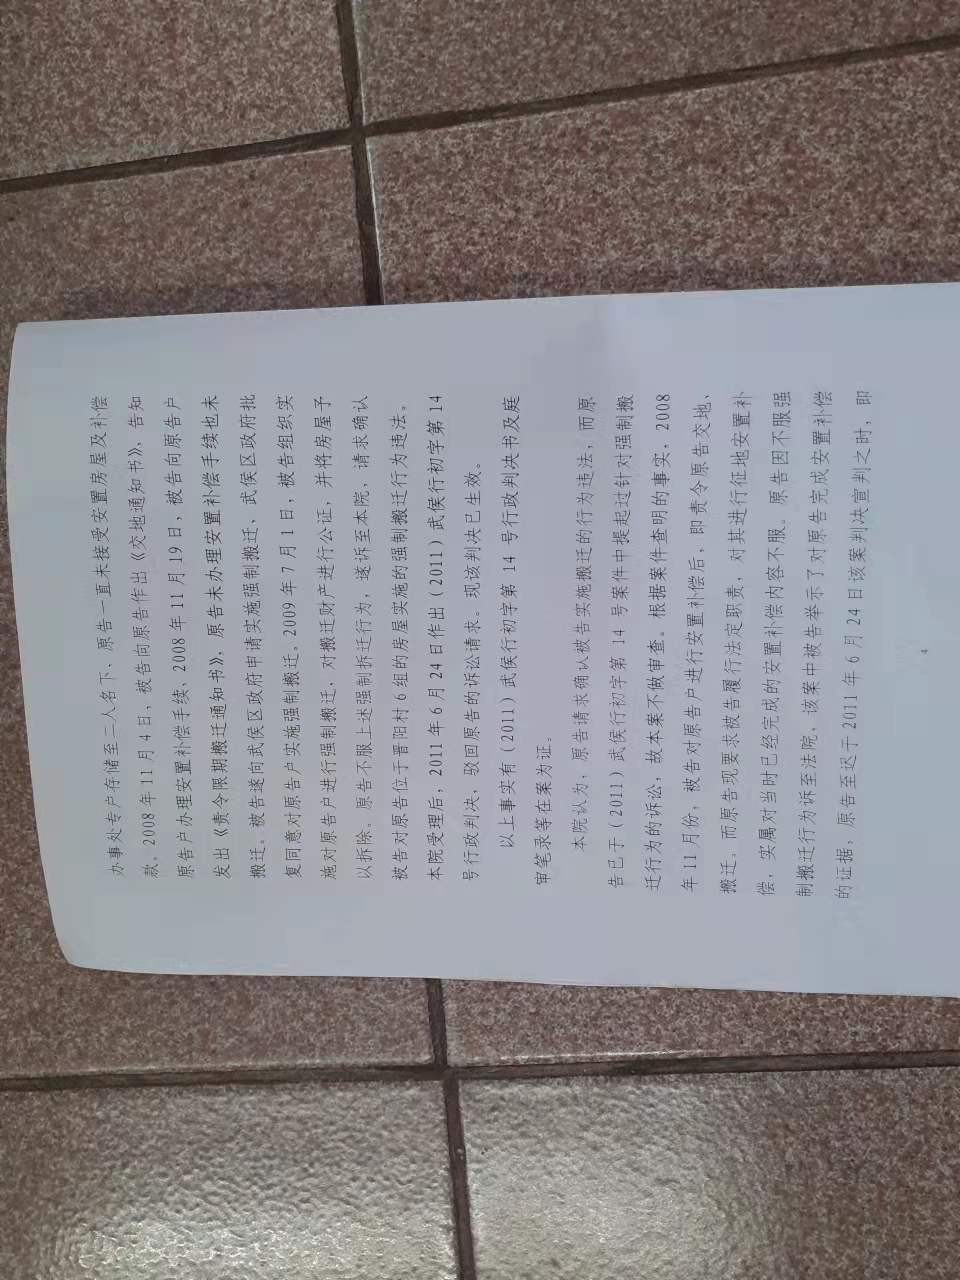 办事处专户存储至二人名下、原告一直未接受安置房屋及补偿
款。2008年11月4日，被告向原告作出《交地通知书》，告知
原告户办理安置补偿手续、2008年11月19日，被告向原告户
发出《责令限期搬迁通知书》，原告未办理安置补偿手续也未
搬迁。被告遂向武侯区政府申请实施强制搬迁，武侯区政府批
复同意对原告户实施强制搬迁。2009年7月1日，被告组织实
施对原告户进行强制搬迁，对搬迁财产进行公证，并将房屋予
以拆除。原告不服上述强制拆迁行为，遂诉至本院，请求确认
被告对原告位于晋阳村6组的房屋实施的强制搬迁行为违法。
本院受理后，2011年6月24日作出（2011）武侯行初字第14
号行政判决，驳回原告的诉讼请求。现该判决已生效。
以上事实有（2011）武侯行初字第14号行政判决书及庭
审笔录等在案为证。
本院认为，原告请求确认被告实施搬迁的行为违法，而原
告已于（2011）武侯行初字第14号案件中提起过针对强制搬
迁行为的诉讼，故本案不做审查。根据案件查明的事实，2008
年11月份，被告对原告户进行安置补偿后，即责令原告交地、
搬迁。而原告现要求被告履行法定职责，对其进行征地安置补
偿，实属对当时已经完成的安置补偿内容不服。原告因不服强
制搬迁行为诉至法院，该案中被告举示了对原告完成安置补偿
的证据，原告至迟于2011年6月24日该案判决宣判之时，即
4